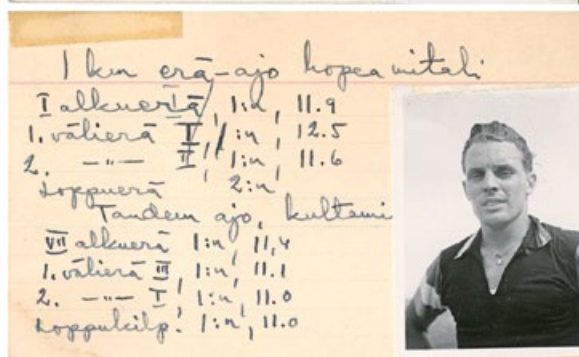 1 km erä-ajo hopeamitali
I alkuerä I, 1:n, 11.9
1. välierä I, 1:n, 12.5
2. —"— II, 1:n, 11.6
Loppuerä 2:n
Tandem ajo, kultami
VII alkuerä 1:n, 11,4
1. välierä III, 1:n, 11.1
2. —"— I, 1:n, 11.0
Loppukilp. 1:n, 11.0